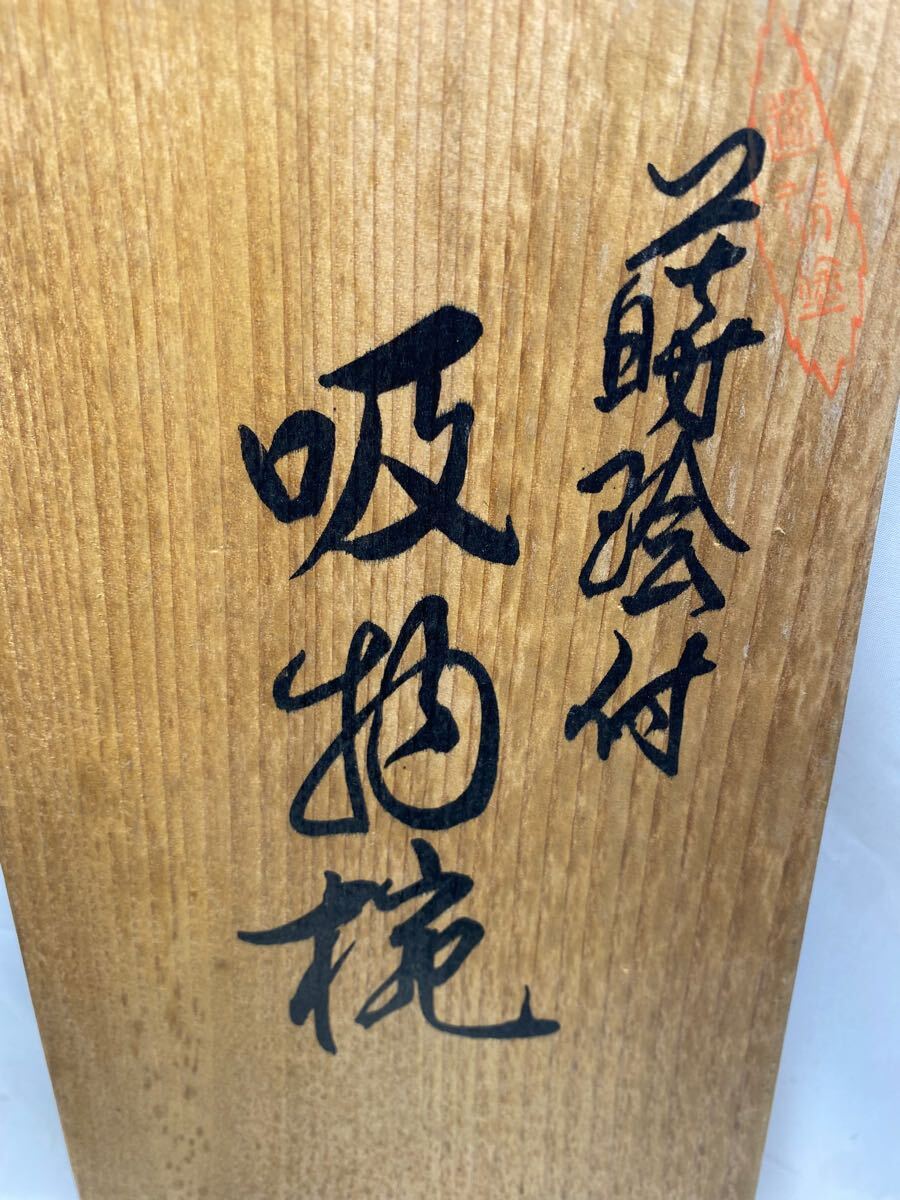 蒔絵付
吸物椀